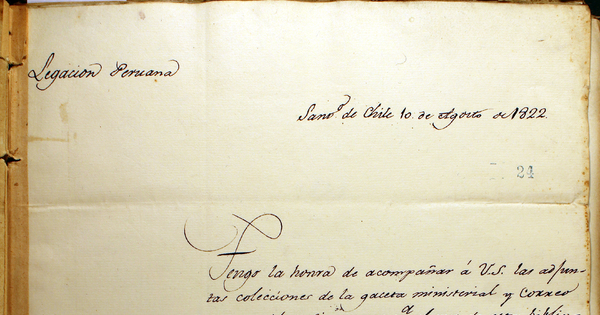 Legacion Peruana
Sano.º de Chile 10 de Agosto de 1822.
24
Tengo la honra de acompañar á U.S. las adjun-
tas colecciones de la gaceta ministerial y Correo